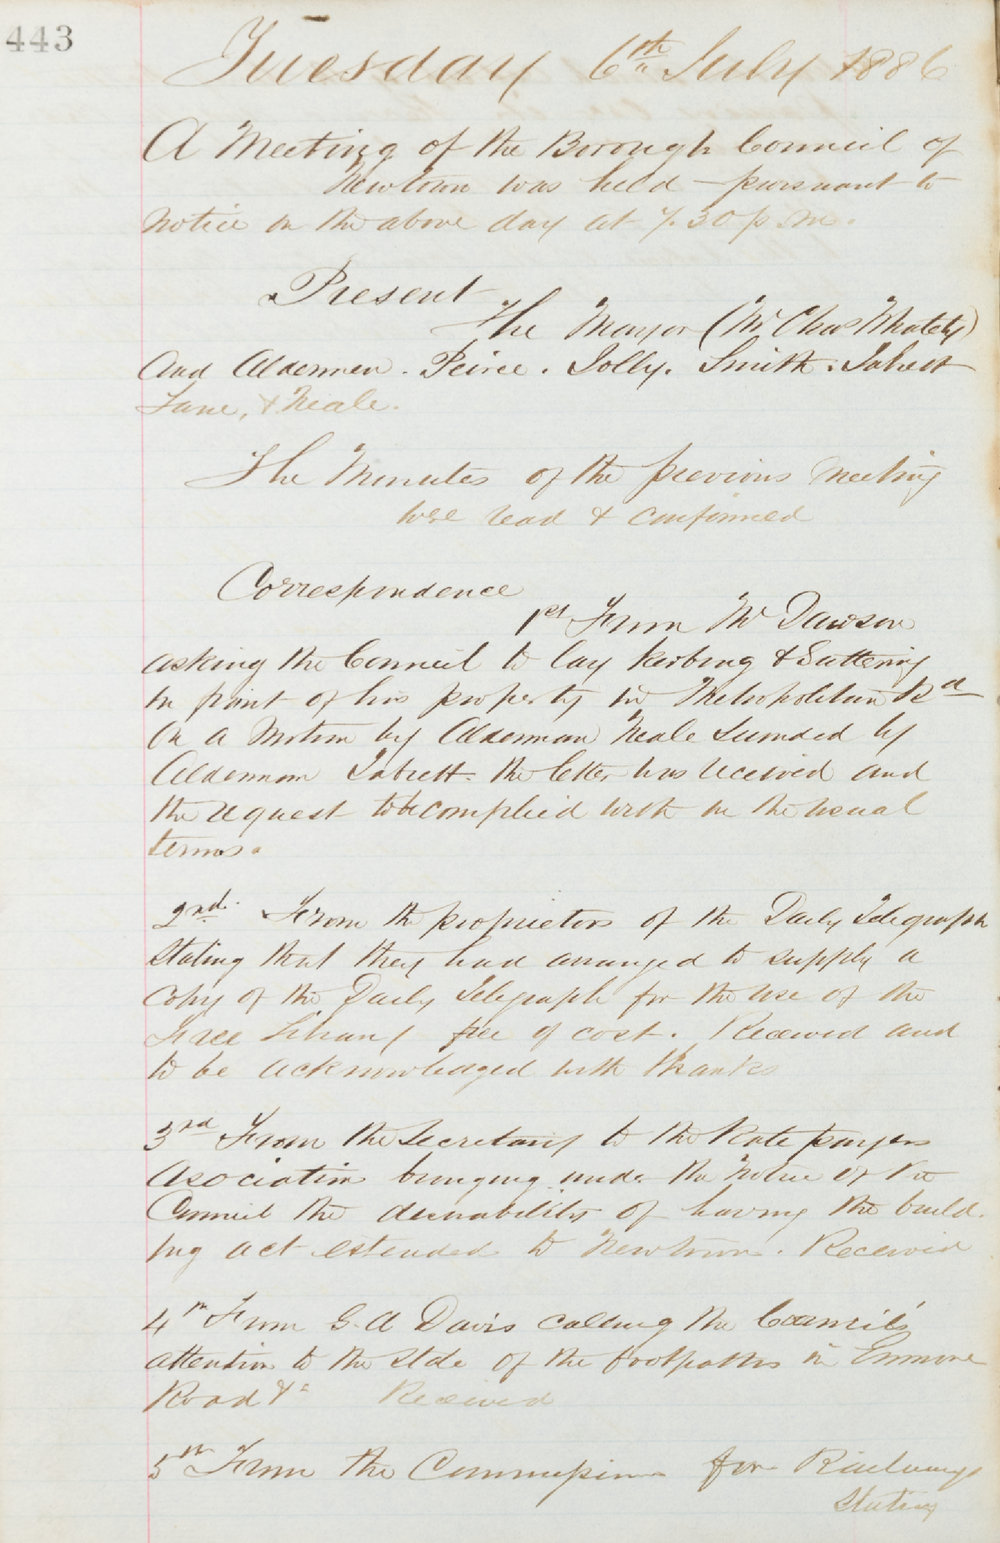 443
Tuesday 6th July 1886
A Meeting of the Borough Council of
Newtown was held pursuant to
notice on the above day at 7.30 p.m.
Present
The Mayor (Mr Chas Whately)
and Aldermen. Peirce. Jolly. Smith.
Lane, & Neale.
The Minutes of the previous meeting
were read & confirmed
Correspondence
1st From Mr Dawson
asking the Council to lay Kerbing & Guttering
in front of his property in Metropolitan Rd
On a Motion by Alderman Neale seconded by
Alderman the letter was received and
the request to be complied with on the usual
terms.
2nd. From the proprietors of the Daily Telegraph
stating that they had arranged to supply a
copy of the Daily Telegraph for the use of the
Free Library free of cost. Received and
to be acknowledged with thanks
3rd From the Secretary to the Rate payers
Asociation bringing under the notice of the
Council the desirability of having the build-
ing act extended to Newtown. Received
4th From G. A Davis calling the Council's
attention to the state of the footpaths in Enmore
Road &c Received
5th From the Commissioner for Railways
Stating